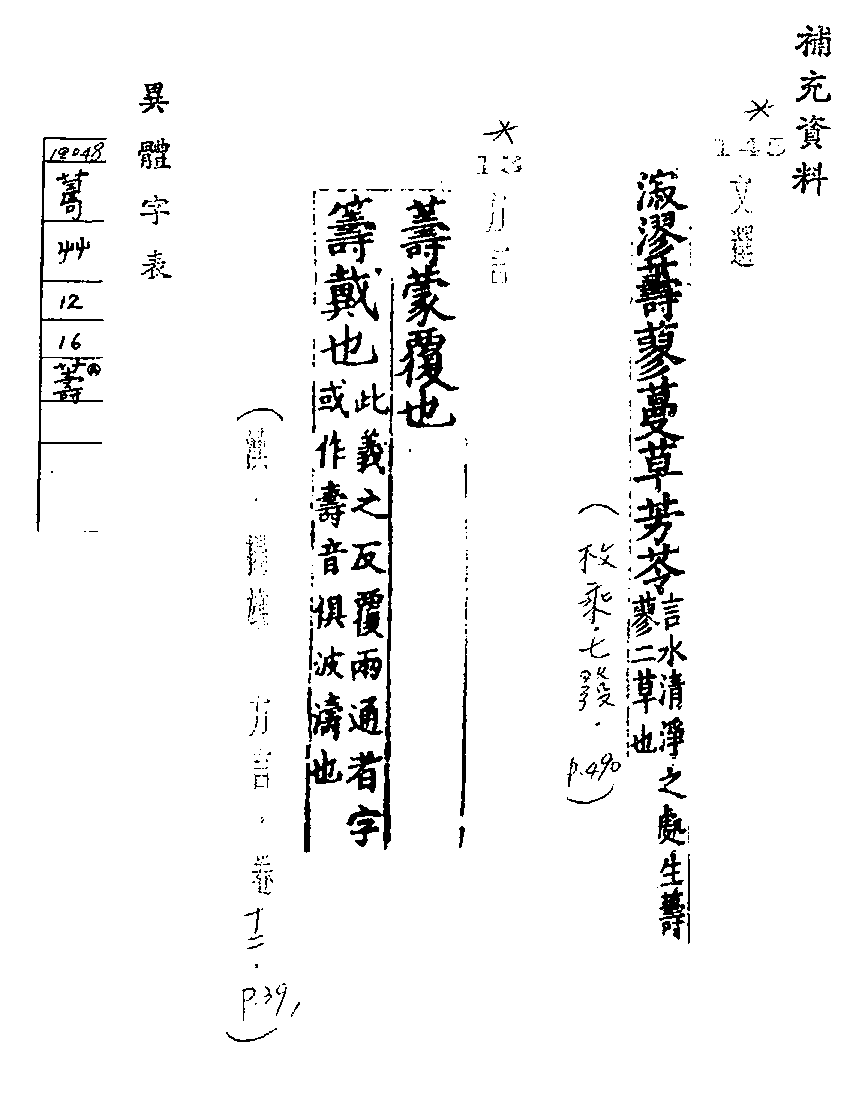 補充資料
*
145 文選
淑漻𦿊蓼蔓草芳苓言水清淨之處生籌
蓼二草也
(枚乘.七發.p.490)
*
13 方言
籌蒙覆也
籌戴也此義之反覆兩通者字
或作壽音俱波濤也
(漢.揚雄 方言.卷十二.p.39)
異體字表
12048
艸
12
16